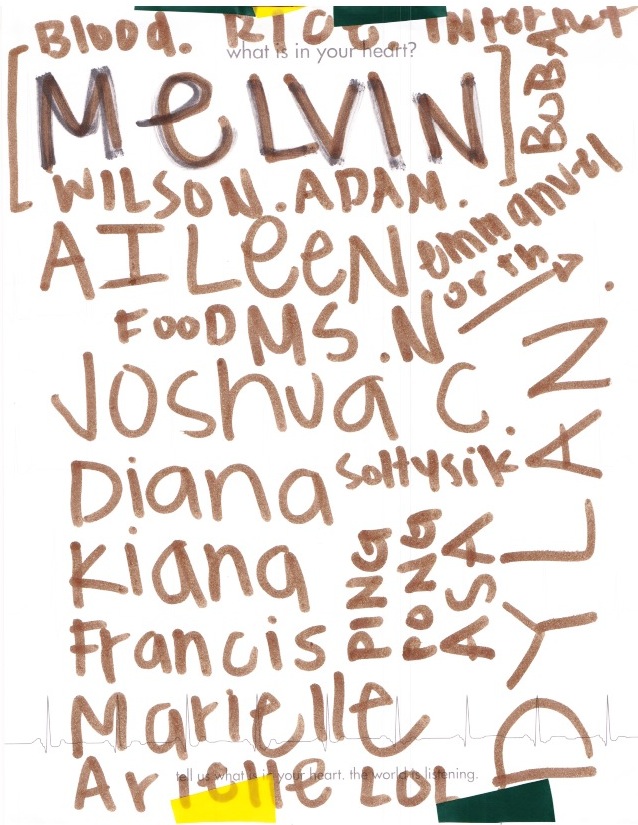 Blood. RICE. Internet
what is in your heart?
[MELVIN]
BUBA
WILSON. ADAM.
emmanuel
AILEEN
FOOD MS. North
Joshua C.
Diana Soltysik
Kiana
PING
PONG
ASA
Francis
DYLAN.
Marielle
tell us what is in your heart. the world is listening.
Arielle LOL